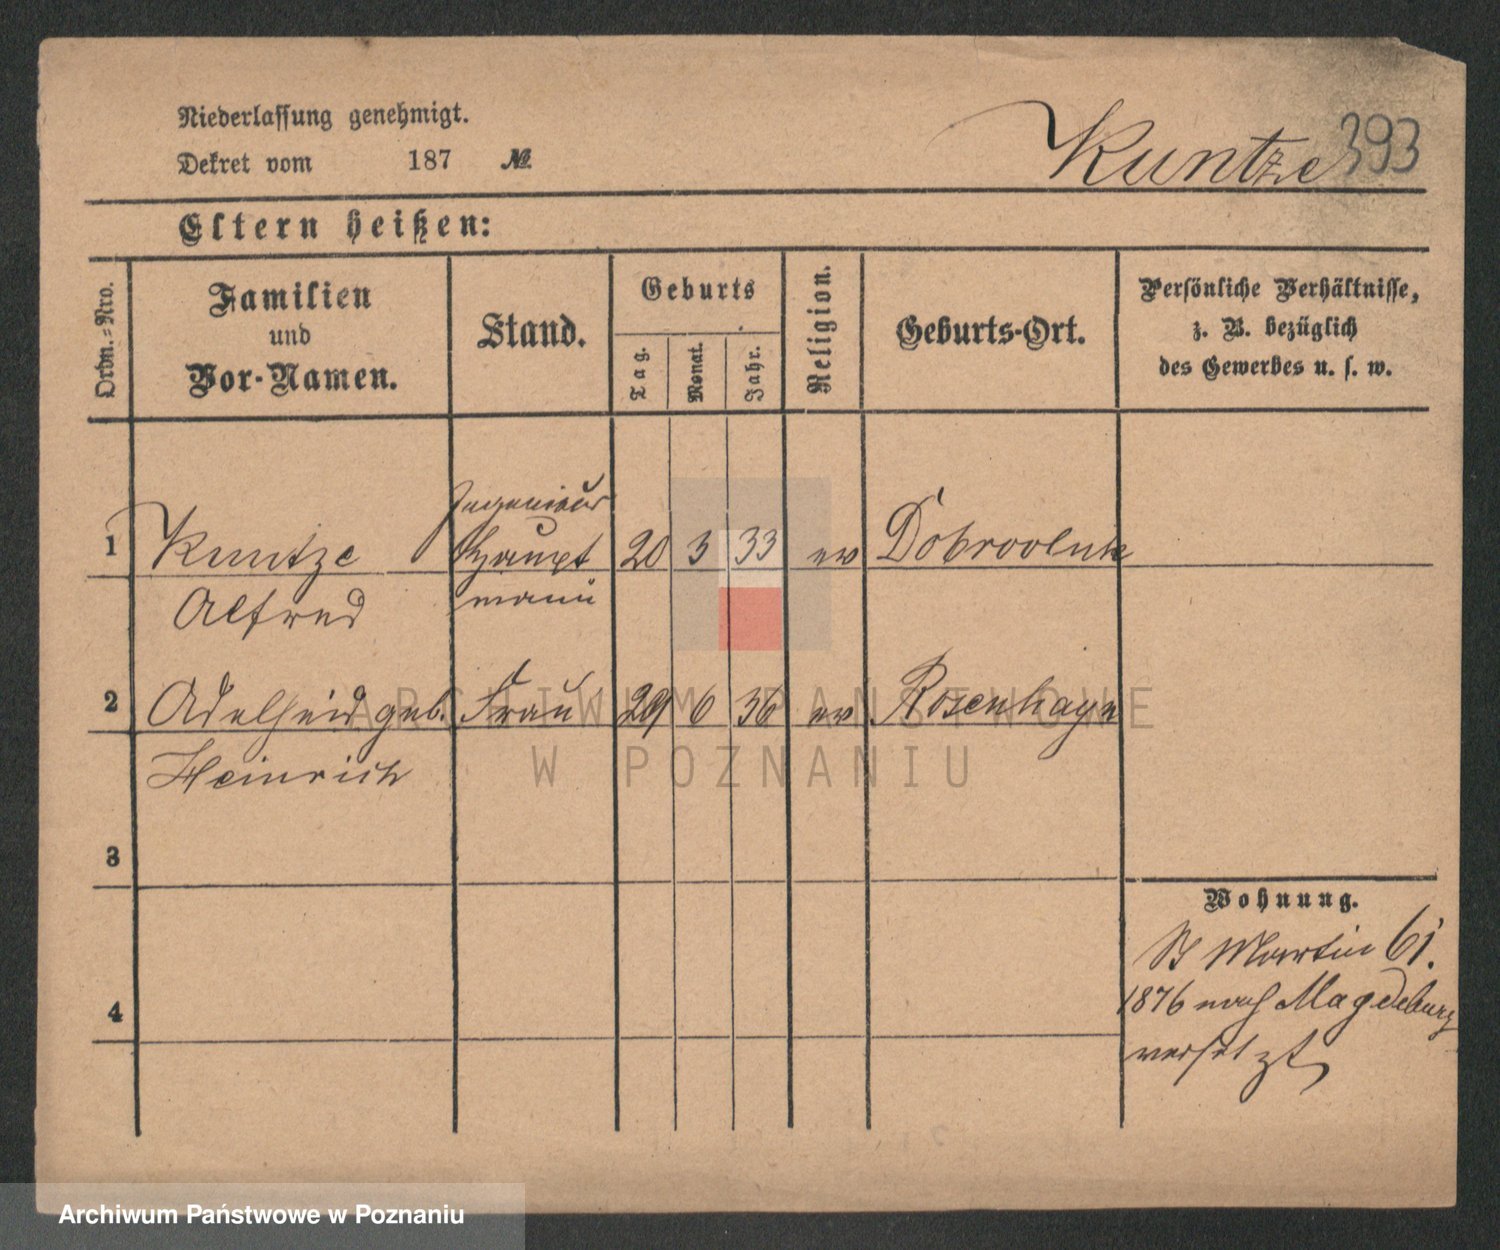 Niederlassung genehmigt.
Dekret vom 187 №
Kuntze 393
Eltern heißen:
Ordn.=Nro.
Familien
und
Vor-Namen.
Stand.
Geburts
Tag.
Monat.
Jahr.
Religion.
Geburts-Ort.
Persönliche Verhältnisse,
z. B. bezüglich
des Gewerbes u. s. w.
Ingenieur
1 Kuntze Haupt 20 3 33 ev Dobroluk
Alfred mann
2 Adelheid geb. Frau 29 6 36 ev Rosenhayn
Heinrich
3
Wohnung.
St Martin 61.
1876 nach Magdeburg
4
versetzt
ARCHIWUM PAŃSTWOWE
W POZNANIU
Archiwum Państwowe w Poznaniu